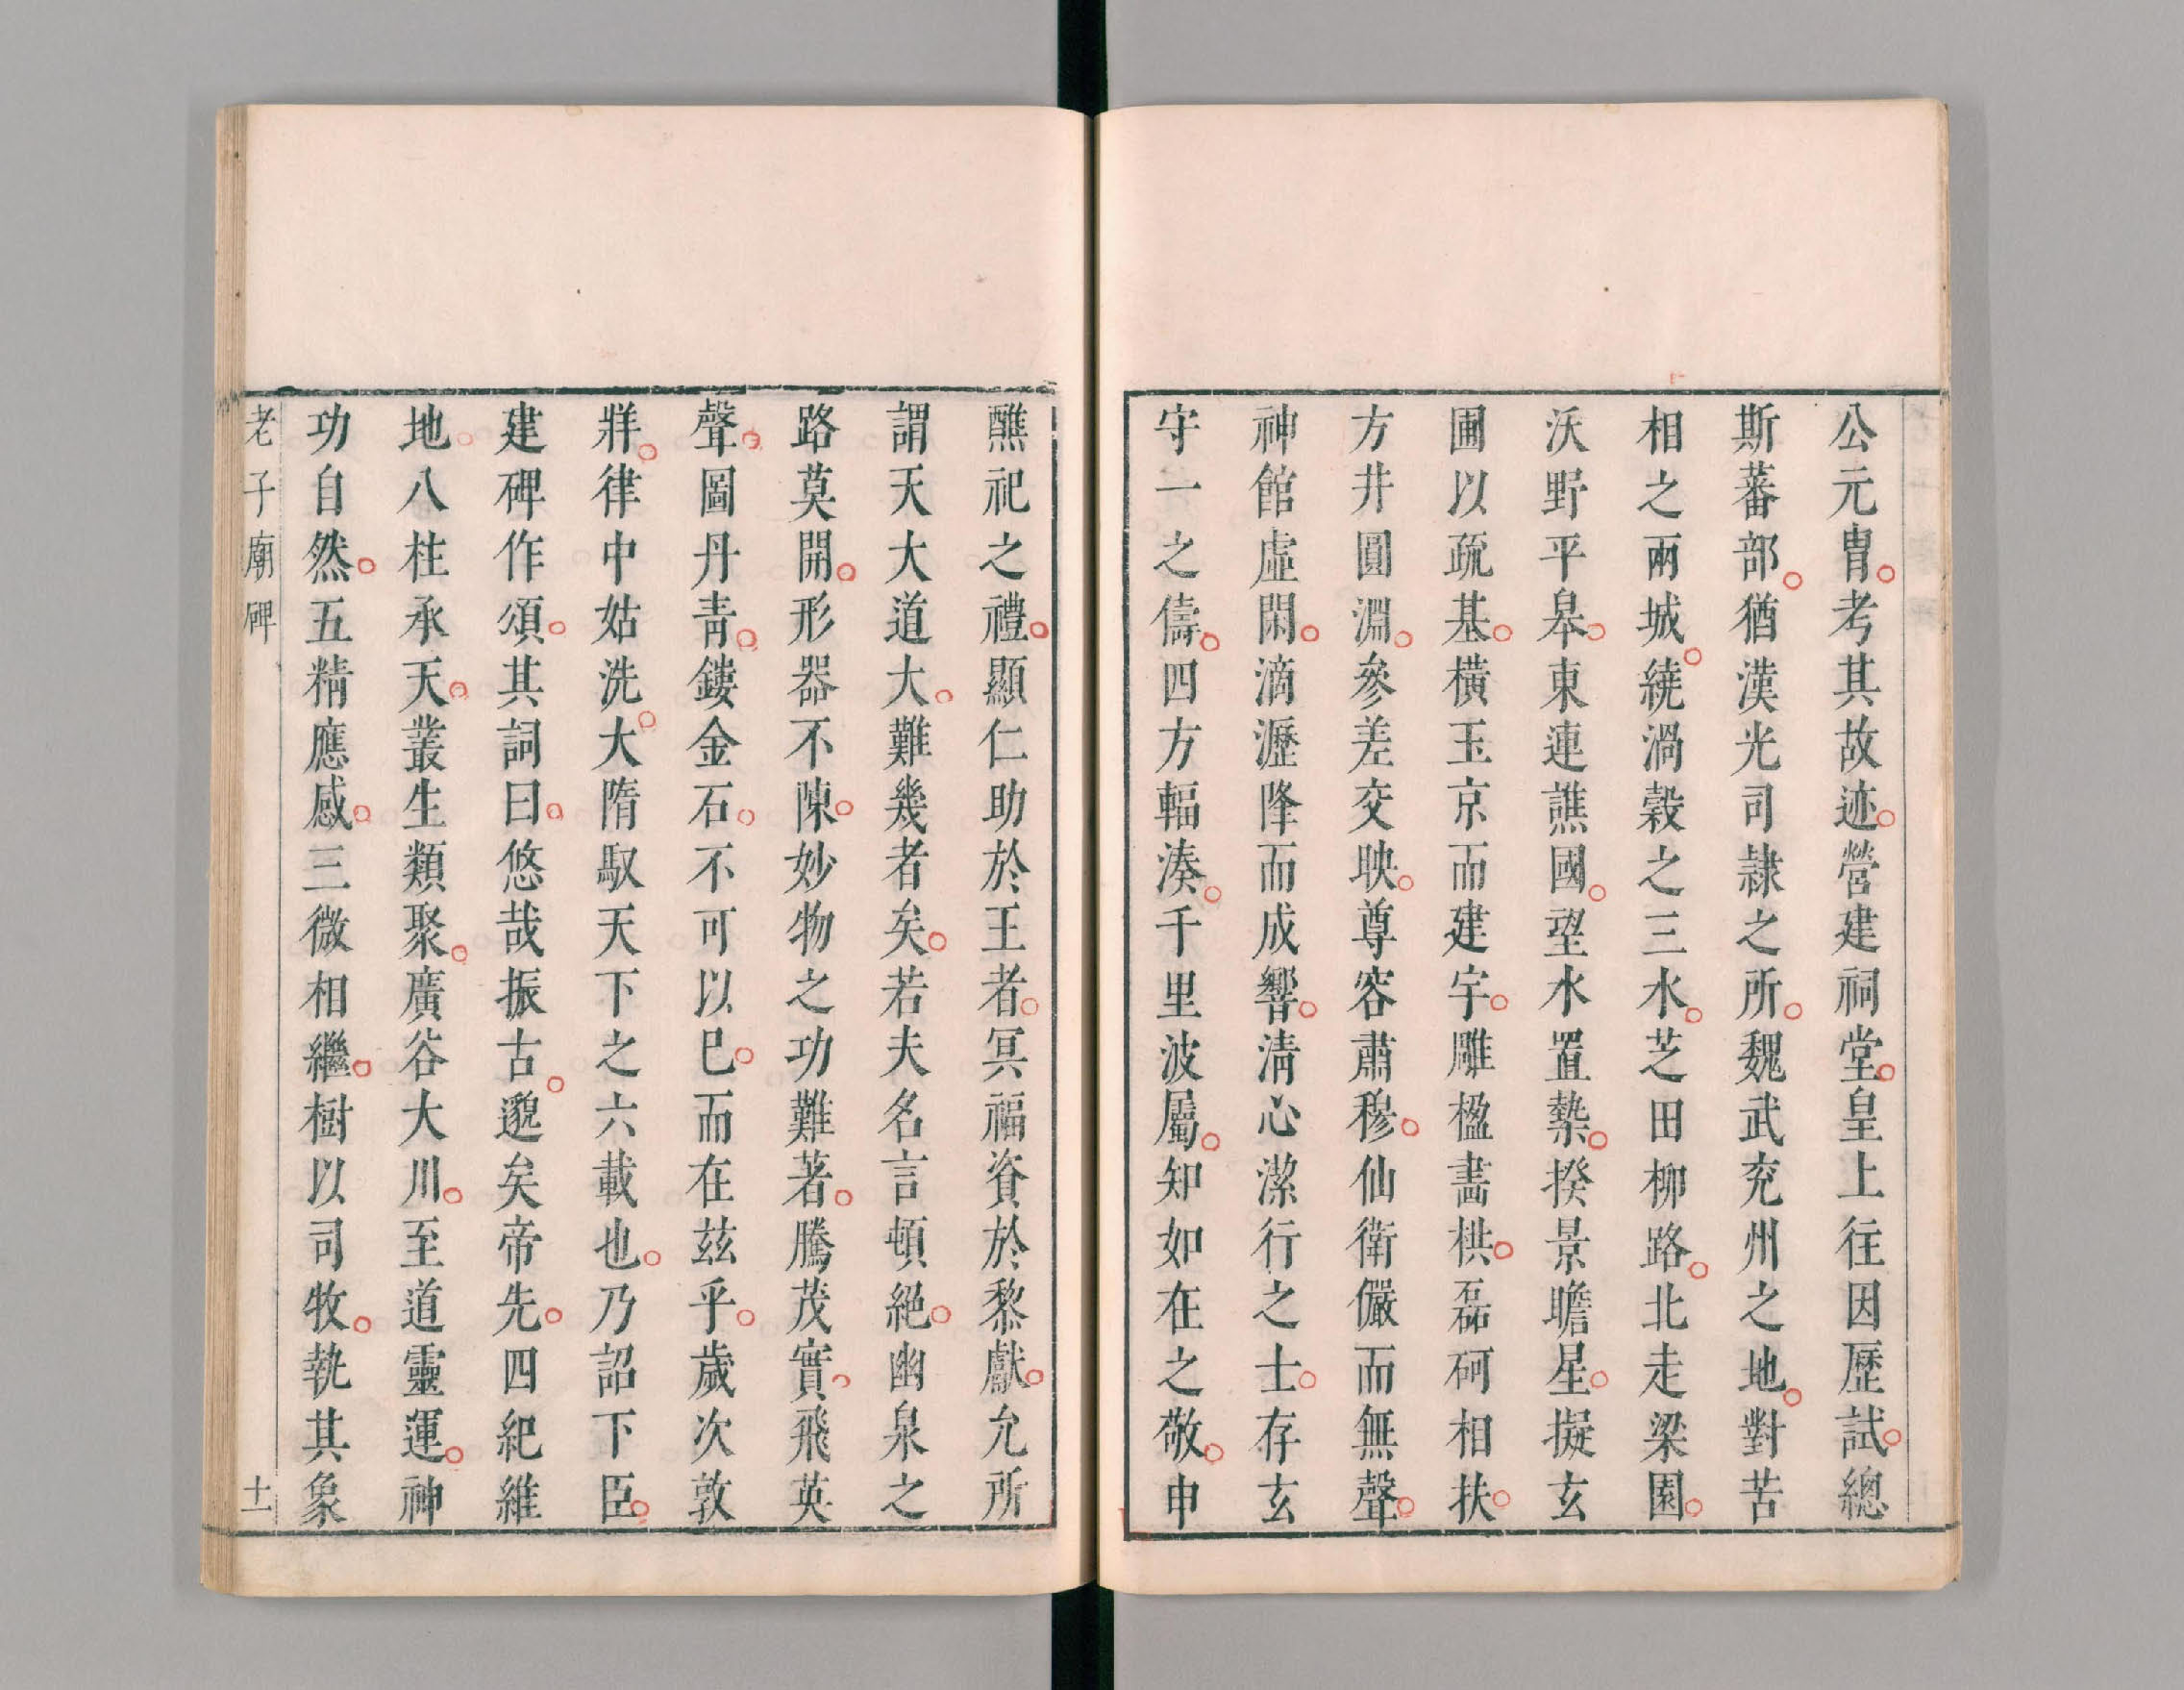 公元冑考其故迹營建祠堂皇上往因歷試總
斯蕃部猶漢光司隷之所魏武兖州之地對苦
相之兩城繞渦榖之三水芝田柳路北走梁園
沃野平皋東連譙國望水置槷揆景瞻星擬玄
圃以疏基横玉京而建宇雕楹畵栱磊砢相扶
方井圓淵參差交映尊容肅穆仙衛儼而無聲
神館虛閑滴瀝降而成響清心潔行之士存玄
守一之儔四方輻湊千里波屬知如在之敬申
醮祀之禮顯仁助於王者冥福資於黎獻允所
謂天大道大難幾者矣若夫名言頓絕幽泉之
路莫開形器不陳妙物之功難著騰茂實飛英
聲圖丹青鏤金石不可以巳而在兹乎歲次敦
牂律中姑洗大隋馭天下之六載也乃詔下臣
建碑作頌其詞曰悠哉振古邈矣帝先四紀維
地八柱承天叢生類聚廣谷大川至道靈運神
功自然五精應感三微相繼樹以司牧執其象
老子廟碑 十一